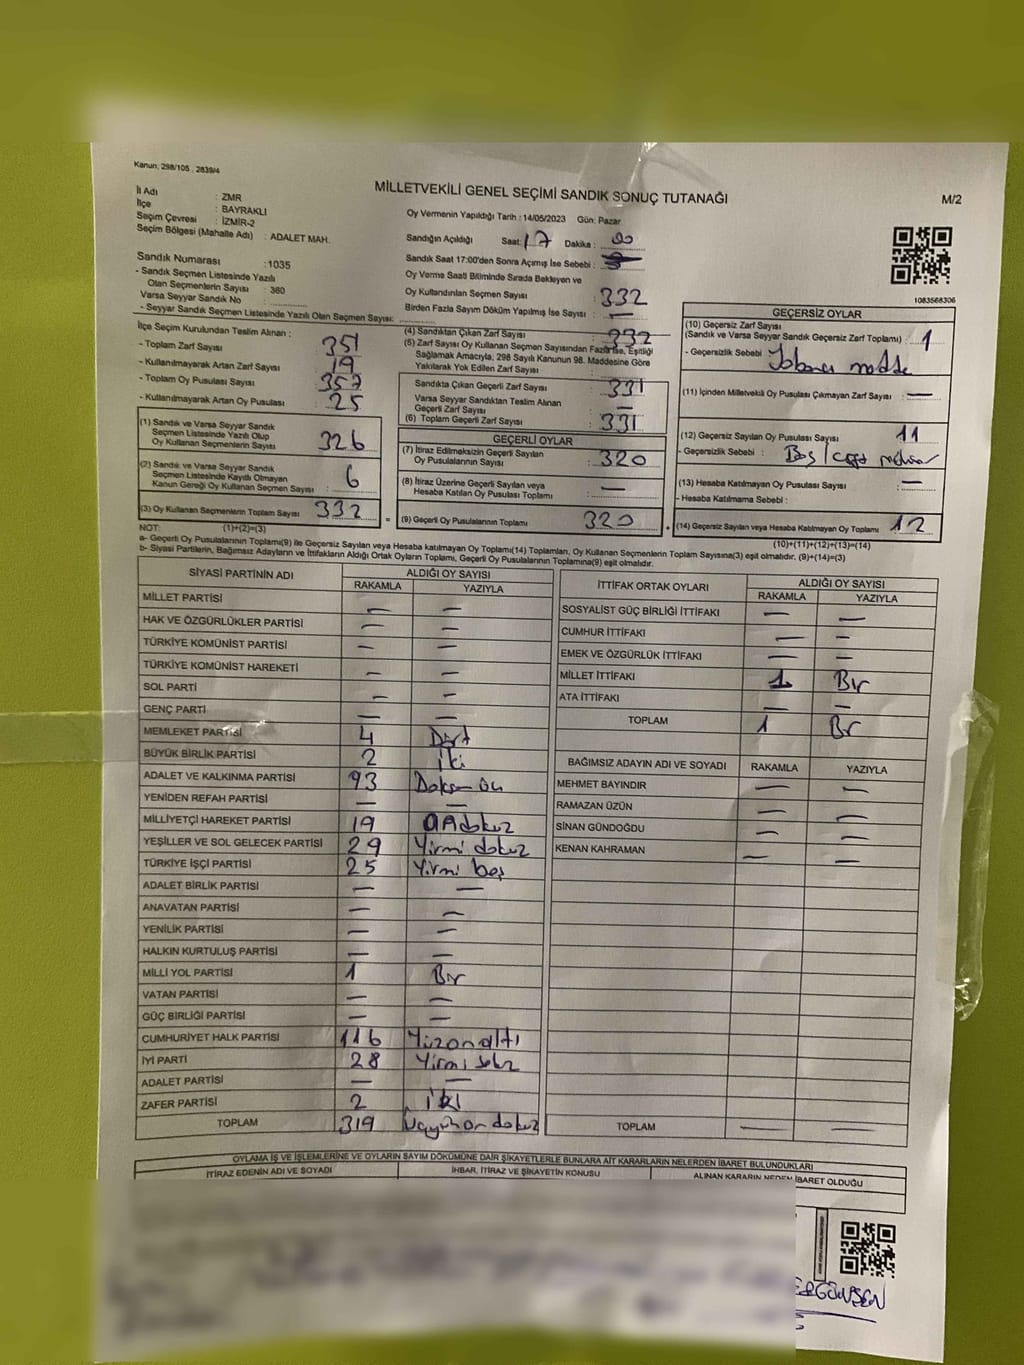 Kanun: 298/105 , 2839/4
MİLLETVEKİLİ GENEL SEÇİMİ SANDIK SONUÇ TUTANAĞI
M/2
İl Adı : ZMR
İlçe : BAYRAKLI
Seçim Çevresi : İZMİR-2
Seçim Bölgesi (Mahalle Adı) : ADALET MAH.
Sandık Numarası :1035
- Sandık Seçmen Listesinde Yazılı
Olan Seçmenlerin Sayısı : 360
Varsa Seyyar Sandık No :
- Seyyar Sandık Seçmen Listesinde Yazılı Olan Seçmen Sayısı:
Oy Vermenin Yapıldığı Tarih : 14/05/2023 Gün: Pazar
Sandığın Açıldığı Saat: 17 Dakika : 00
Sandık Saat 17:00'den Sonra Açımış İse Sebebi :
Oy Verme Saati Bitiminde Sırada Bekleyen ve
Oy Kullandırılan Seçmen Sayısı : 332
Birden Fazla Sayım Döküm Yapılmış İse Sayısı : —
1083568306
İlçe Seçim Kurulundan Teslim Alınan :
- Toplam Zarf Sayısı : 351
- Kullanılmayarak Artan Zarf Sayısı : 19
- Toplam Oy Pusulası Sayısı : 357
- Kullanılmayarak Artan Oy Pusulası : 25
(1) Sandık ve Varsa Seyyar Sandık
Seçmen Listesinde Yazılı Olup
Oy Kullanan Seçmenlerin Sayısı : 326
(2) Sandık ve Varsa Seyyar Sandık
Seçmen Listesinde Kayıtlı Olmayan
Kanun Gereği Oy Kullanan Seçmen Sayısı : 6
(3) Oy Kullanan Seçmenlerin Toplam Sayısı : 332
(4) Sandıktan Çıkan Zarf Sayısı : 332
(5) Zarf Sayısı Oy Kullanan Seçmen Sayısından Fazla İse, Eşitliği
Sağlamak Amacıyla, 298 Sayılı Kanunun 98. Maddesine Göre
Yakılarak Yok Edilen Zarf Sayısı :
Sandıkta Çıkan Geçerli Zarf Sayısı : 331
Varsa Seyyar Sandıktan Teslim Alınan
Geçerli Zarf Sayısı : —
(6) Toplam Geçerli Zarf Sayısı : 331
GEÇERLİ OYLAR
(7) İtiraz Edilmeksizin Geçerli Sayılan
Oy Pusulalarının Sayısı : 320
(8) İtiraz Üzerine Geçerli Sayılan veya
Hesaba Katılan Oy Pusulası Toplamı : —
= (9) Geçerli Oy Pusulalarının Toplamı : 320 +
GEÇERSİZ OYLAR
(10) Geçersiz Zarf Sayısı
(Sandık ve Varsa Seyyar Sandık Geçersiz Zarf Toplamı) : 1
- Geçersizlik Sebebi : Yabancı madde
(11) İçinden Milletvekili Oy Pusulası Çıkmayan Zarf Sayısı : —
(12) Geçersiz Sayılan Oy Pusulası Sayısı : 11
- Geçersizlik Sebebi : Boş/
(13) Hesaba Katılmayan Oy Pusulası Sayısı : —
- Hesaba Katılmama Sebebi :
(14) Geçersiz Sayılan veya Hesaba Katılmayan Oy Toplamı : 12
NOT: (1)+(2)=(3) (10)+(11)+(12)+(13)=(14)
a- Geçerli Oy Pusulalarının Toplamı(9) ile Geçersiz Sayılan veya Hesaba katılmayan Oy Toplamı(14) Toplamları, Oy Kullanan Seçmenlerin Toplam Sayısına(3) eşit olmalıdır. (9)+(14)=(3)
b- Siyasi Partilerin, Bağımsız Adayların ve İttifakların Aldığı Ortak Oyların Toplamı, Geçerli Oy Pusulalarının Toplamına(9) eşit olmalıdır.
SİYASİ PARTİNİN ADI ALDIĞI OY SAYISI
RAKAMLA YAZIYLA
MİLLET PARTİSİ — —
HAK VE ÖZGÜRLÜKLER PARTİSİ — —
TÜRKİYE KOMÜNİST PARTİSİ — —
TÜRKİYE KOMÜNİST HAREKETİ — —
SOL PARTİ — —
GENÇ PARTİ — —
MEMLEKET PARTİSİ 4 Dört
BÜYÜK BİRLİK PARTİSİ 2 iki
ADALET VE KALKINMA PARTİSİ 93 Doksan üç
YENİDEN REFAH PARTİSİ — —
MİLLİYETÇİ HAREKET PARTİSİ 19 Ondokuz
YEŞİLLER VE SOL GELECEK PARTİSİ 29 Yirmi dokuz
TÜRKİYE İŞÇİ PARTİSİ 25 Yirmi beş
ADALET BİRLİK PARTİSİ — —
ANAVATAN PARTİSİ — —
YENİLİK PARTİSİ — —
HALKIN KURTULUŞ PARTİSİ — —
MİLLİ YOL PARTİSİ 1 Bir
VATAN PARTİSİ — —
GÜÇ BİRLİĞİ PARTİSİ — —
CUMHURİYET HALK PARTİSİ 116 Yüzonaltı
İYİ PARTİ 28 Yirmi sekiz
ADALET PARTİSİ — —
ZAFER PARTİSİ 2 iki
TOPLAM 319 Üçyüzondokuz
İTTİFAK ORTAK OYLARI ALDIĞI OY SAYISI
RAKAMLA YAZIYLA
SOSYALİST GÜÇ BİRLİĞİ İTTİFAKI — —
CUMHUR İTTİFAKI — —
EMEK VE ÖZGÜRLÜK İTTİFAKI — —
MİLLET İTTİFAKI 1 Bir
ATA İTTİFAKI — —
TOPLAM 1 Bir
BAĞIMSIZ ADAYIN ADI VE SOYADI RAKAMLA YAZIYLA
MEHMET BAYINDIR — —
RAMAZAN ÜZÜN — —
SİNAN GÜNDOĞDU — —
KENAN KAHRAMAN — —
TOPLAM — —
OYLAMA İŞ VE İŞLEMLERİNE VE OYLARIN SAYIM DÖKÜMÜNE DAİR ŞİKAYETLERLE BUNLARA AİT KARARLARIN NELERDEN İBARET BULUNDUKLARI
İTİRAZ EDENİN ADI VE SOYADI İHBAR, İTİRAZ VE ŞİKAYETİN KONUSU ALINAN KARARIN NEDEN İBARET OLDUĞU